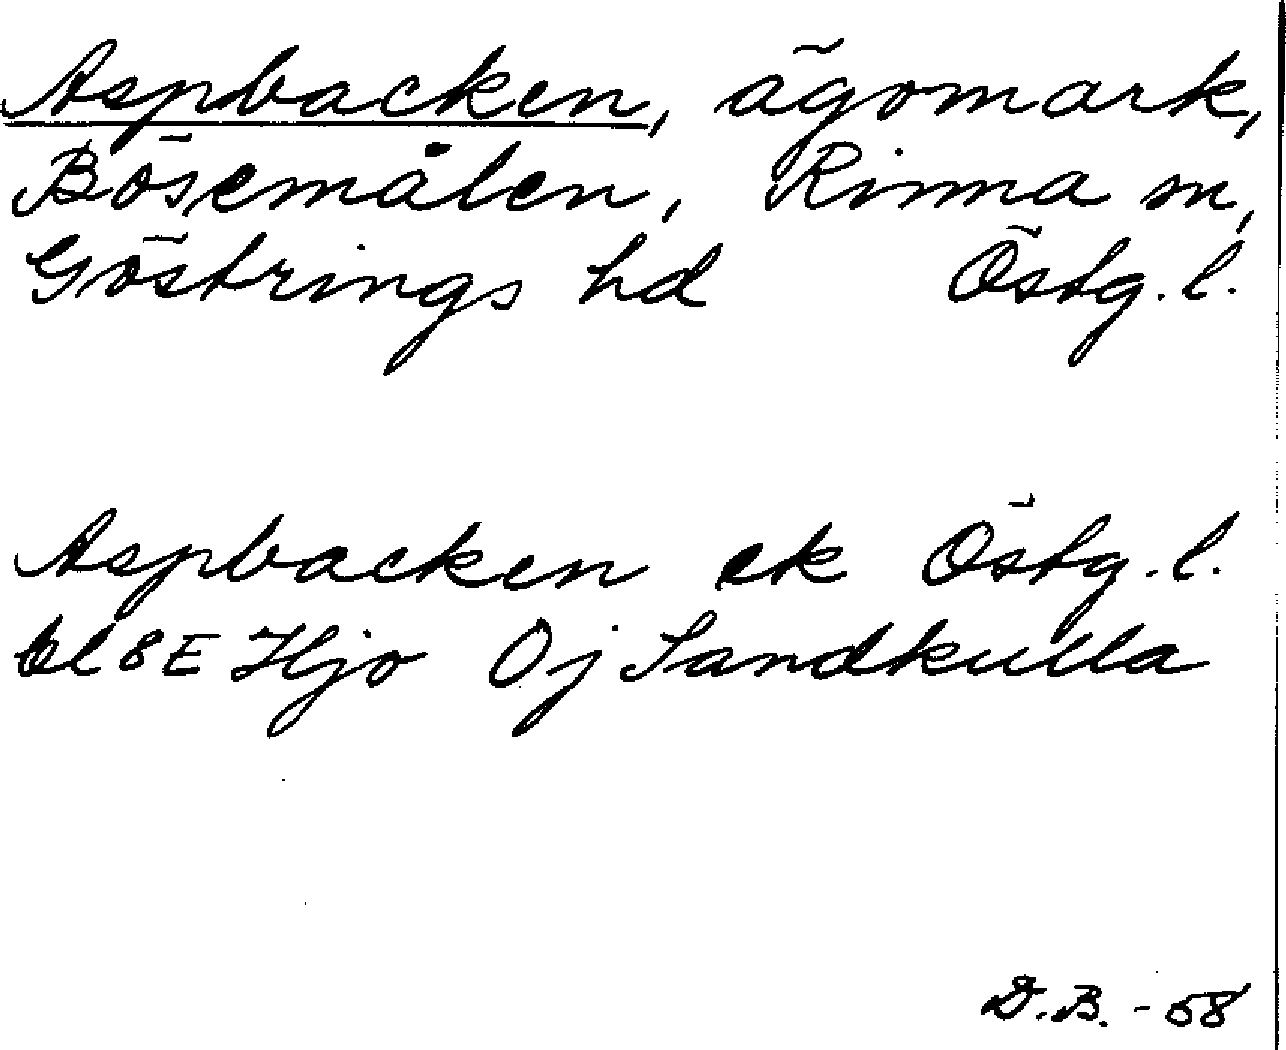 Aspbacken, ägomark,
Bösemålen, Rinna sn,
Göstrings hd Östg. l.
Aspbacken ek Östg. l.
bl 8E Hjo Oj Sandkulla
D.B. - 58